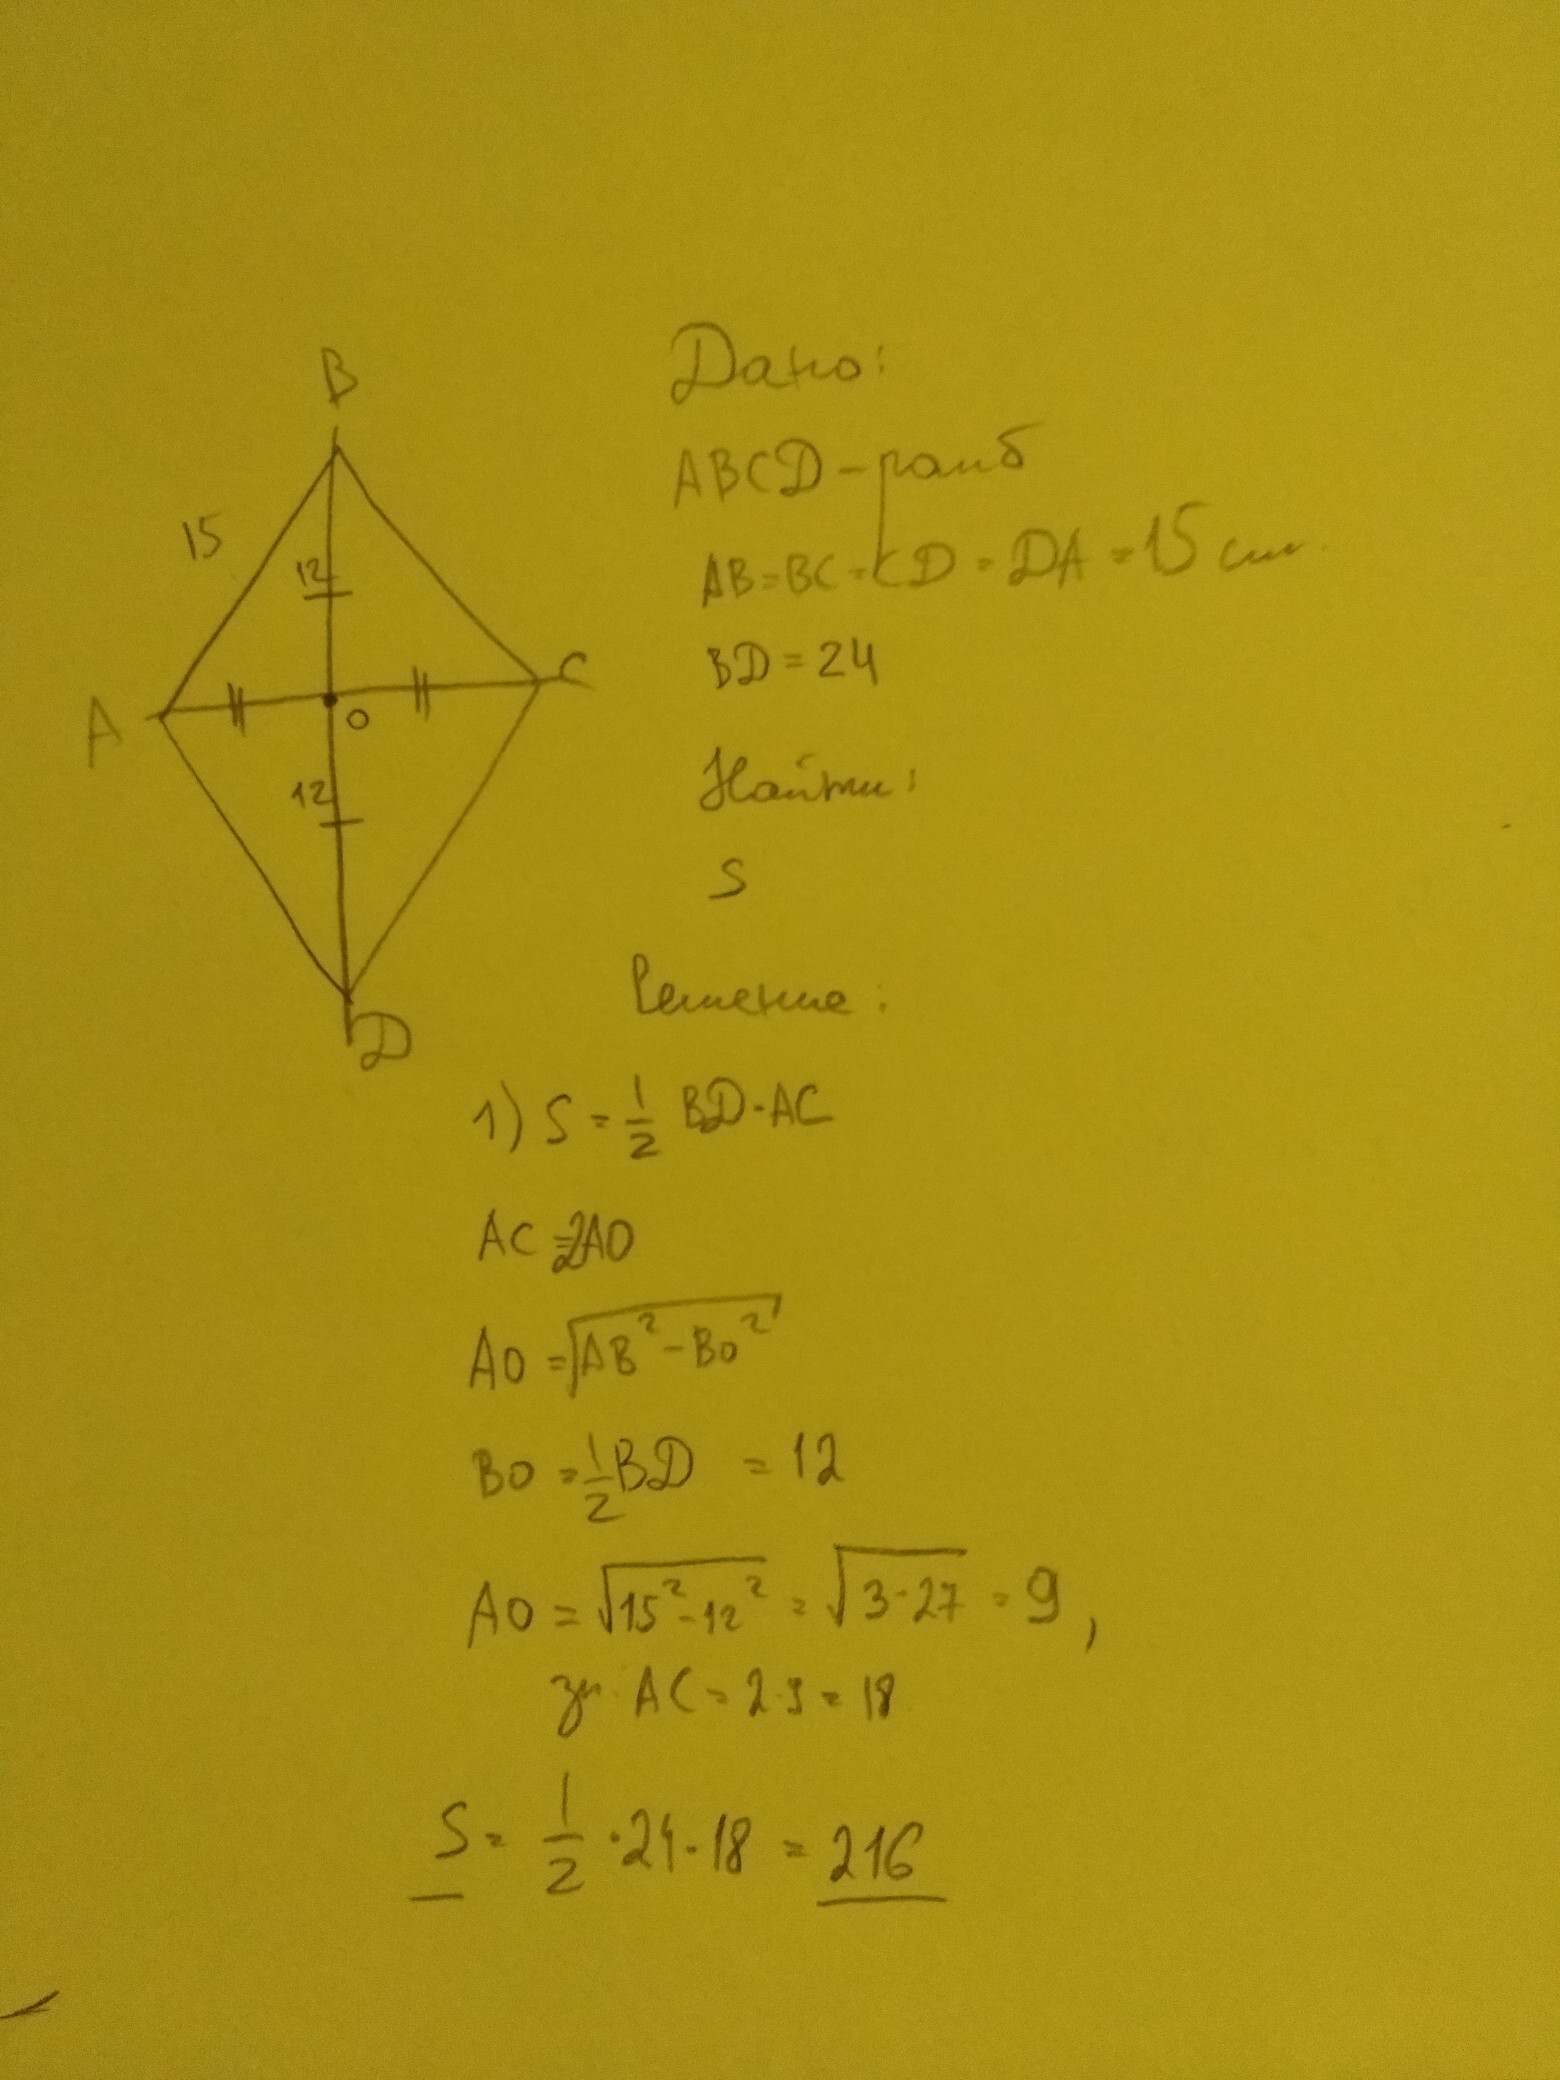 B
15
12
A
C
O
12
D
Дано:
ABCD - ромб
AB = BC = CD = DA = 15 см
BD = 24
Найти:
S
Решение:
1) S = 1/2 BD · AC
AC = 2AO
AO = √(AB² - BO²)
BO = 1/2 BD = 12
AO = √(15² - 12²) = √(3 · 27) = 9,
зн. AC = 2 · 9 = 18
S = 1/2 · 24 · 18 = 216